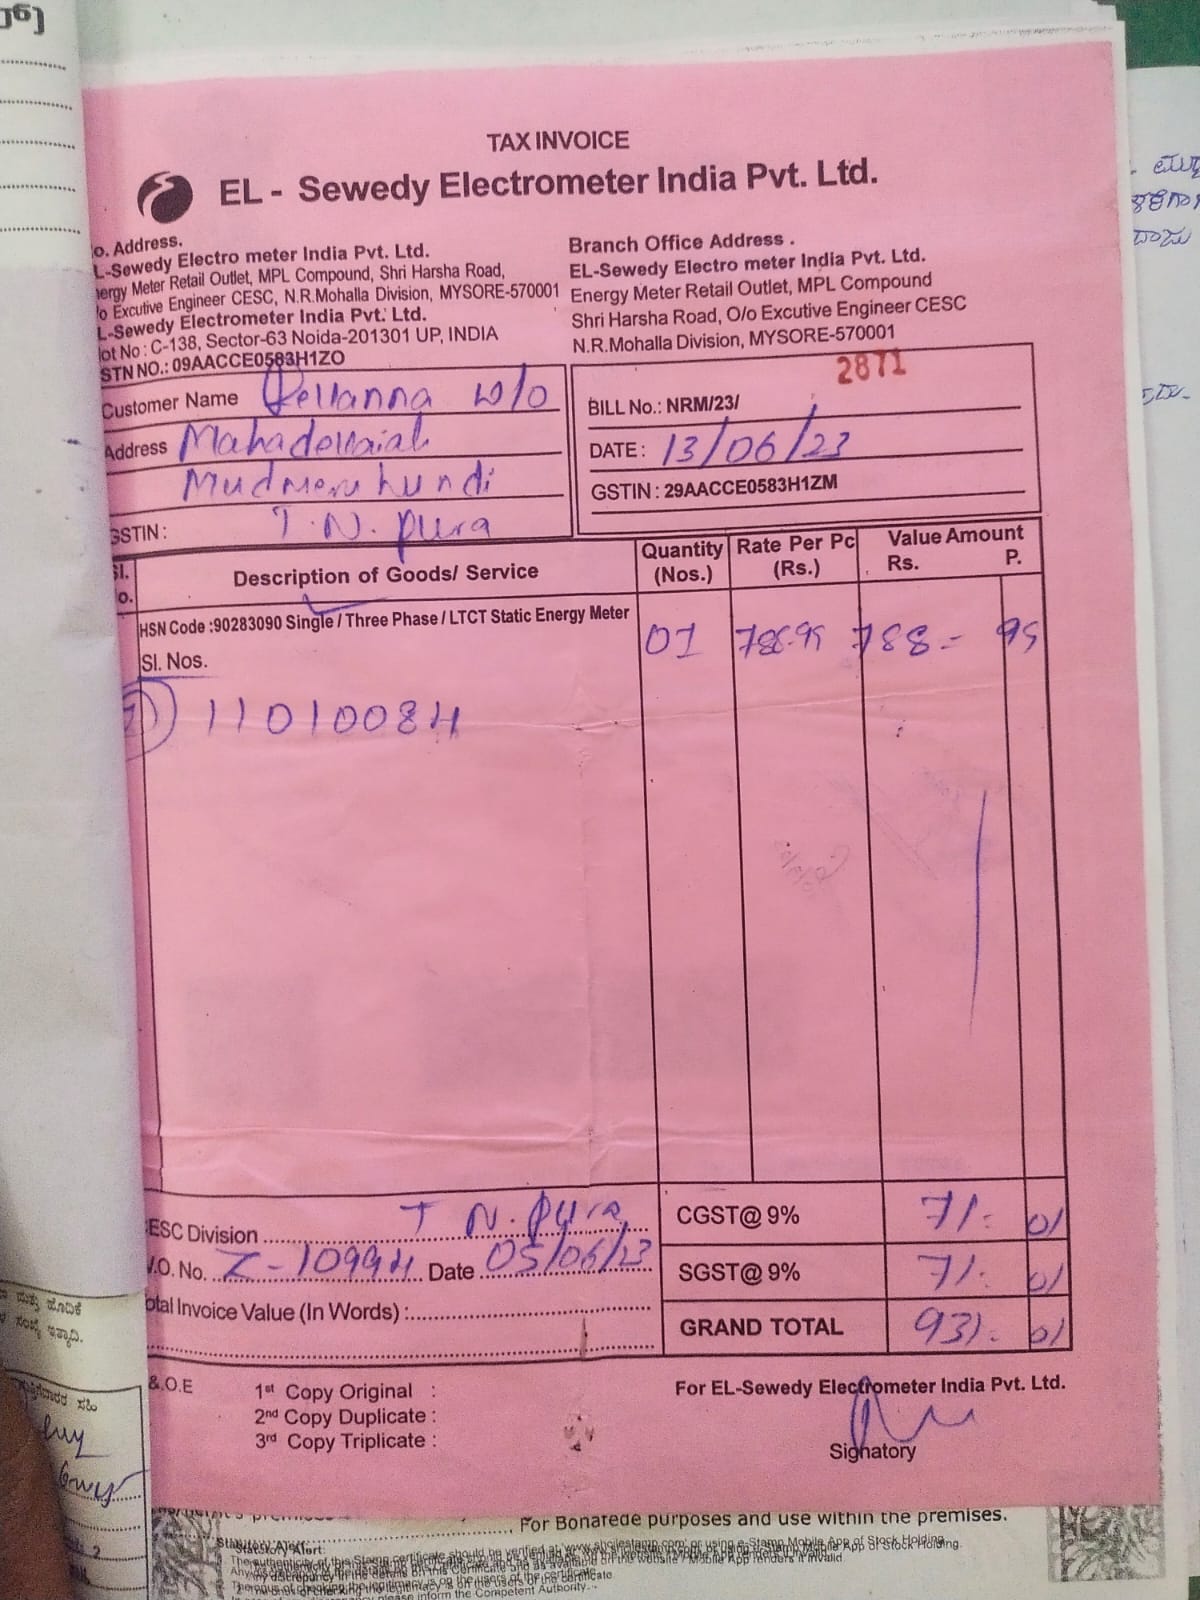 TAX INVOICE
EL - Sewedy Electrometer India Pvt. Ltd.
o. Address.
L-Sewedy Electro meter India Pvt. Ltd.
ergy Meter Retail Outlet, MPL Compound, Shri Harsha Road,
/o Excutive Engineer CESC, N.R.Mohalla Division, MYSORE-570001
L-Sewedy Electrometer India Pvt. Ltd.
lot No : C-138, Sector-63 Noida-201301 UP, INDIA
STN NO.: 09AACCE0583H1ZO
Branch Office Address .
EL-Sewedy Electro meter India Pvt. Ltd.
Energy Meter Retail Outlet, MPL Compound
Shri Harsha Road, O/o Excutive Engineer CESC
N.R.Mohalla Division, MYSORE-570001
Customer Name w/o
Address
GSTIN : T.N. pura
2871
BILL No.: NRM/23/
DATE : 13/06/23
GSTIN : 29AACCE0583H1ZM
Sl. No. Description of Goods/ Service Quantity (Nos.) Rate Per Pc (Rs.) Value Amount Rs. P.
HSN Code :90283090 Single / Three Phase / LTCT Static Energy Meter 01 788-95 788 - 95
Sl. Nos.
1) 11010084
ESC Division T N. pura
.O. No. Z-10994 Date 05/06/23
otal Invoice Value (In Words) :
CGST@ 9% 71- 01
SGST@ 9% 71- 01
GRAND TOTAL 931- 01
&.O.E
1st Copy Original :
2nd Copy Duplicate :
3rd Copy Triplicate :
For EL-Sewedy Electrometer India Pvt. Ltd.
Signatory
For Bonafede purposes and use within the premises.
Statutory Alert: